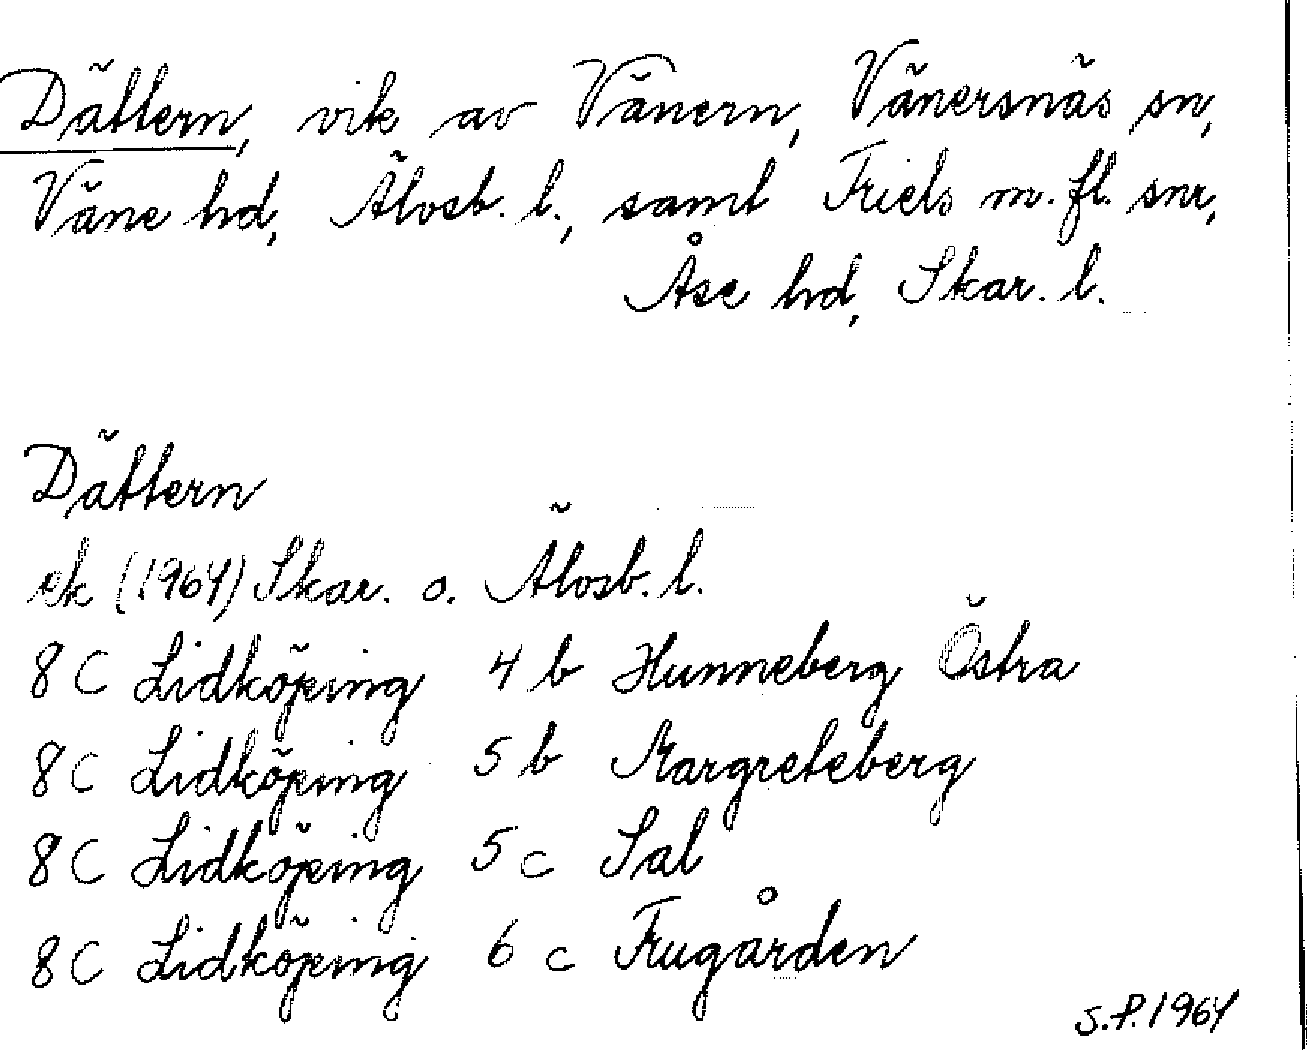 Dättern, vik av Vänern, Vänersnäs sn,
Väne hd, Älvsb. l., samt Friels m. fl. snr,
Åse hd, Skar. l.
Dättern
ek (1964) Skar. o. Älvsb. l.
8 C Lidköping 4 b Hunneberg Östra
8 C Lidköping 5 b Margreteberg
8 C Lidköping 5 c Sal
8 C Lidköping 6 c Frugården
S.P. 1964